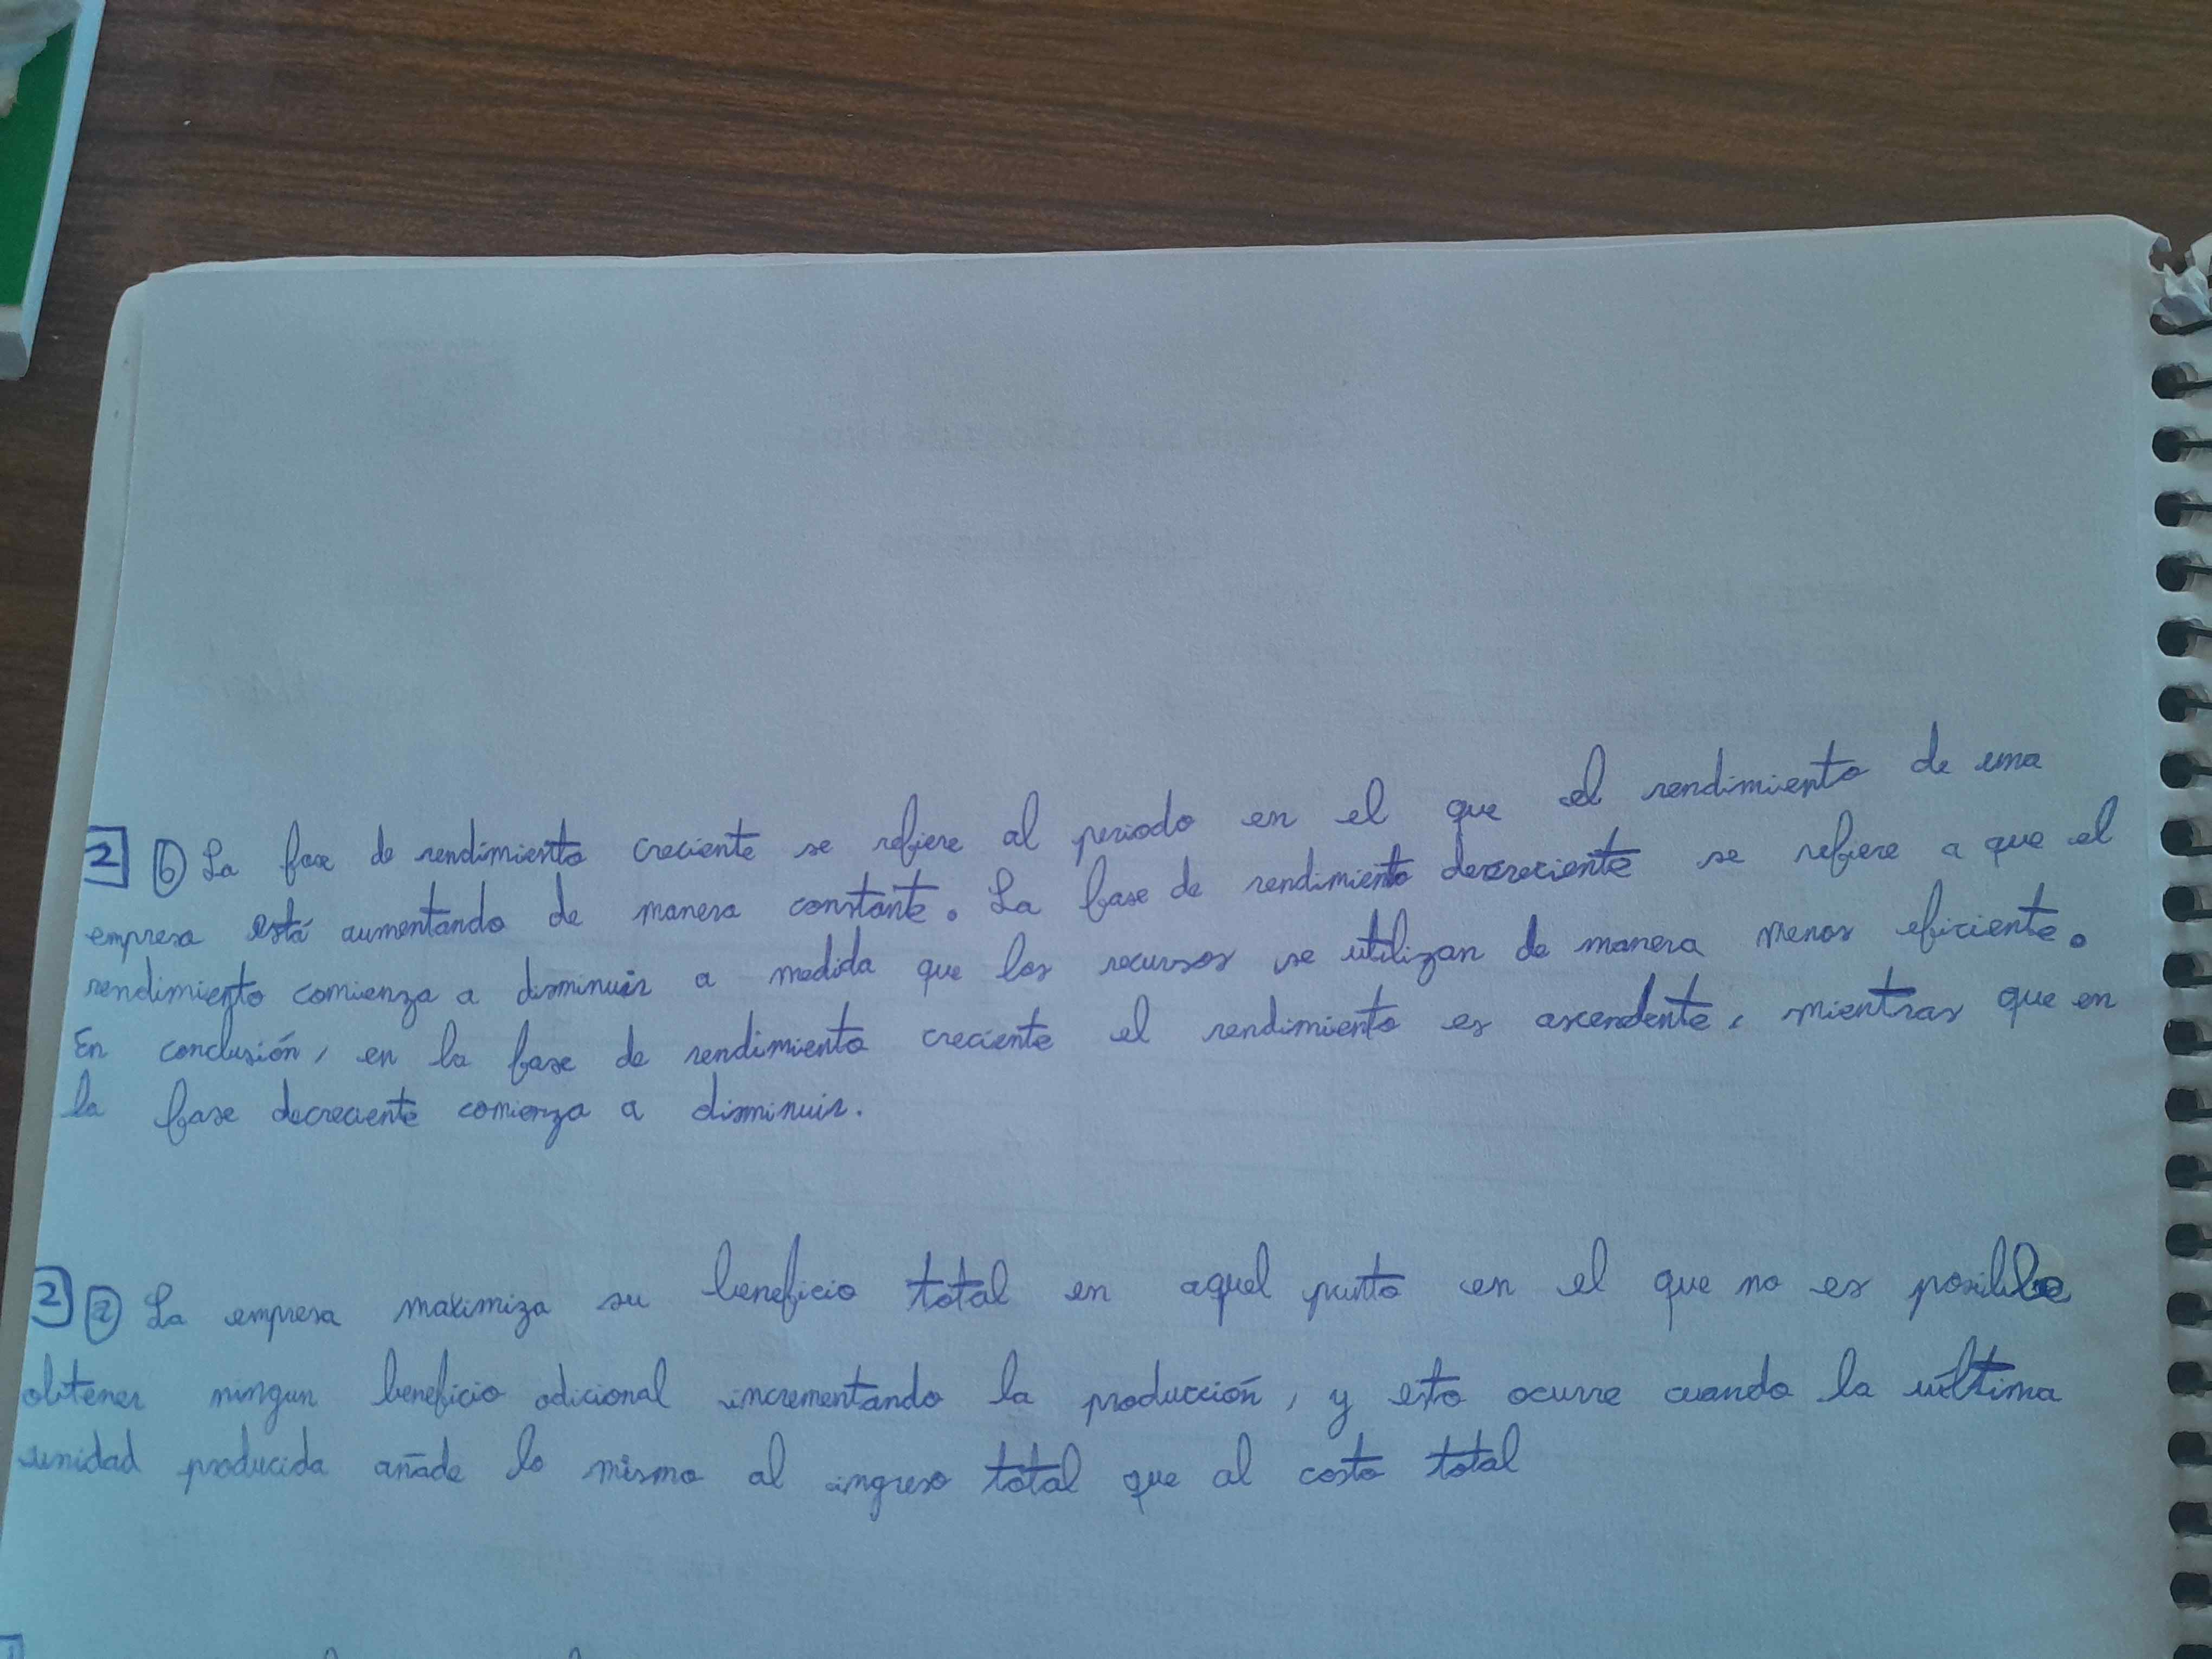 2 b La fase de rendimiento creciente se refiere al periodo en el que el rendimiento de una
empresa está aumentando de manera constante. La fase de rendimiento decreciente se refiere a que el
rendimiento comienza a disminuir a medida que los recursos se utilizan de manera menos eficiente.
En conclusión, en la fase de rendimiento creciente el rendimiento es ascendente, mientras que en
la fase decreciente comienza a disminuir.
2 a La empresa maximiza su beneficio total en aquel punto en el que no es posible
obtener ningun beneficio adicional incrementando la producción, y esto ocurre cuando la última
unidad producida añade lo mismo al ingreso total que al costo total